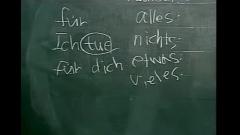 für alles.
Ich tue nichts.
für dich etwas.
vieles.